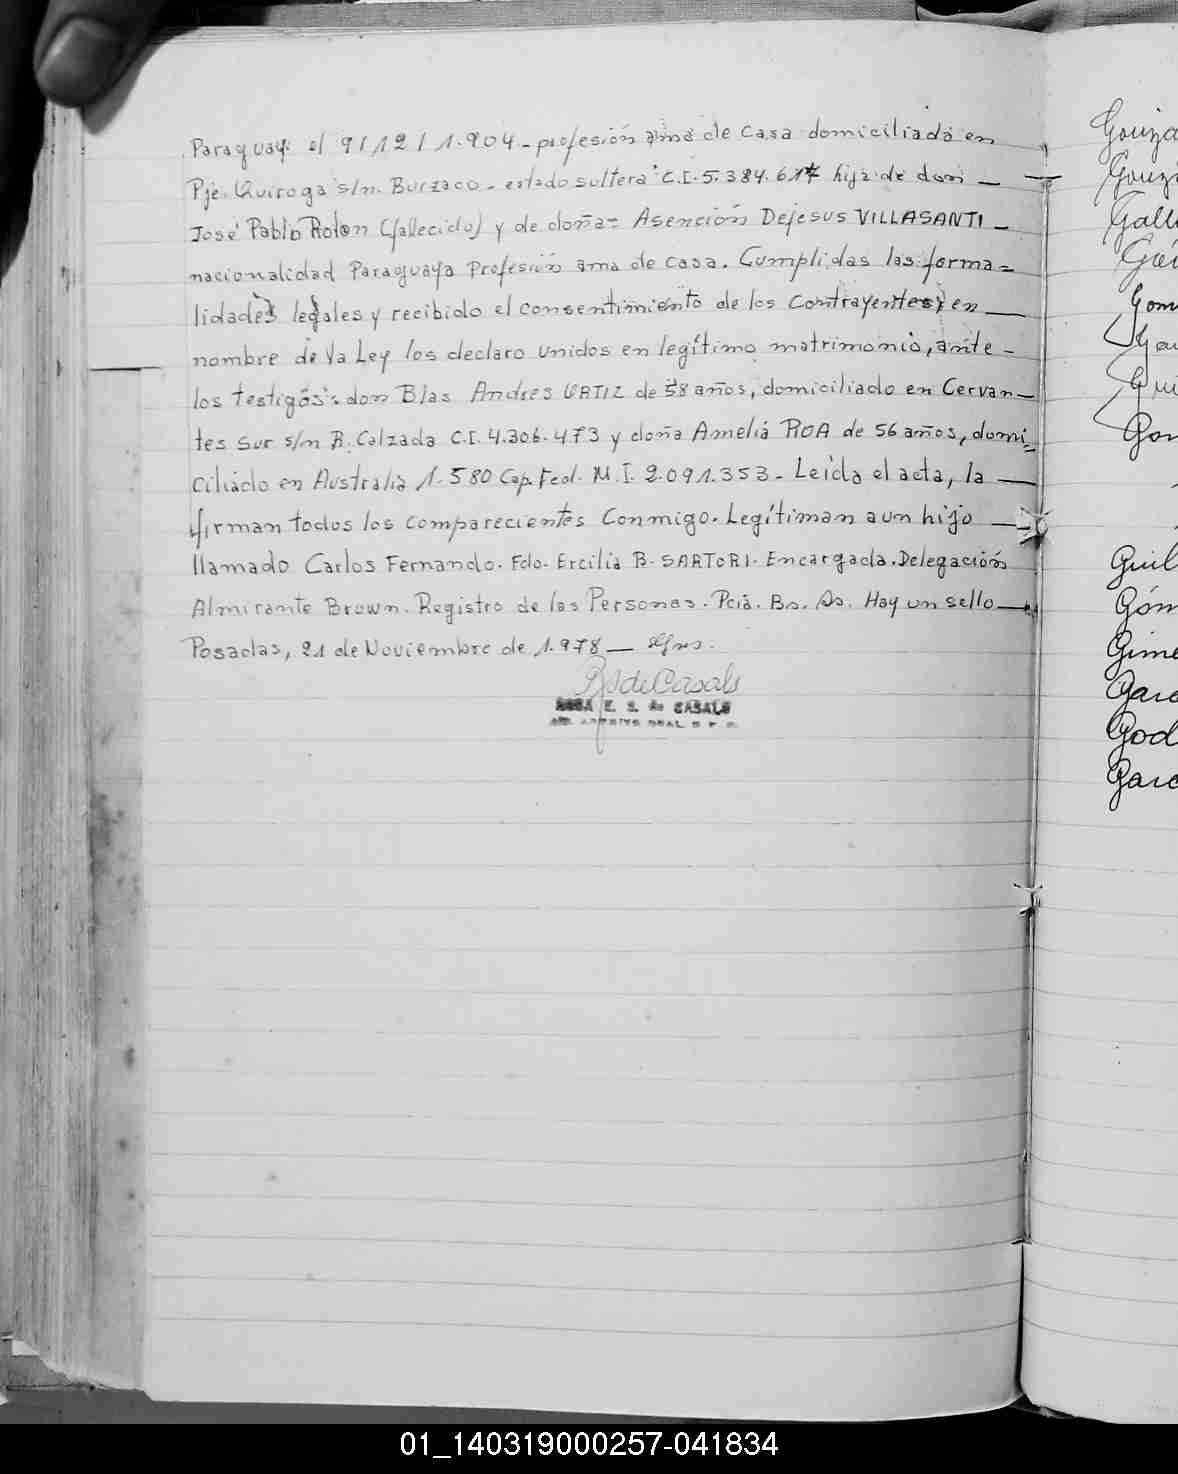 Paraguay el 9/12/1.904 - profesión ama de casa domiciliada en
Pje. Quiroga s/n. Burzaco - estado soltera C.I. 5.384.617 hija de don —
José Pablo Rolon (fallecido) y de doña = Asención Dejesus VILLASANTI —
nacionalidad Paraguaya Profesión ama de casa. Cumplidas las forma=
lidades legales y recibido el consentimiento de los contrayentes; en —
nombre de la Ley los declaro unidos en legítimo matrimonio, ante -
los testigos: don Blas Andres ORTIZ de 58 años, domiciliado en Cervan-
tes Sur s/n R. Calzada C.I. 4.306.473 y doña Amelia ROA de 56 años, domi=
ciliado en Australia 1.580 Cap. Fed. M.I. 2.091.353 - Leída el acta, la —
firman todos los comparecientes conmigo. Legitiman a un hijo —
llamado Carlos Fernando. Fdo. Ercilia B. SARTORI. Encargada. Delegación
Almirante Brown. Registro de las Personas. Pcia. Bs. As. Hay un sello —
Posadas, 21 de Noviembre de 1.978 —
de Casals
ROSA E. S. de CASALS
Gonza
Gonz
Gall
Gom
Guil
Góm
Gime
Garc
God
Garc
01_140319000257-041834